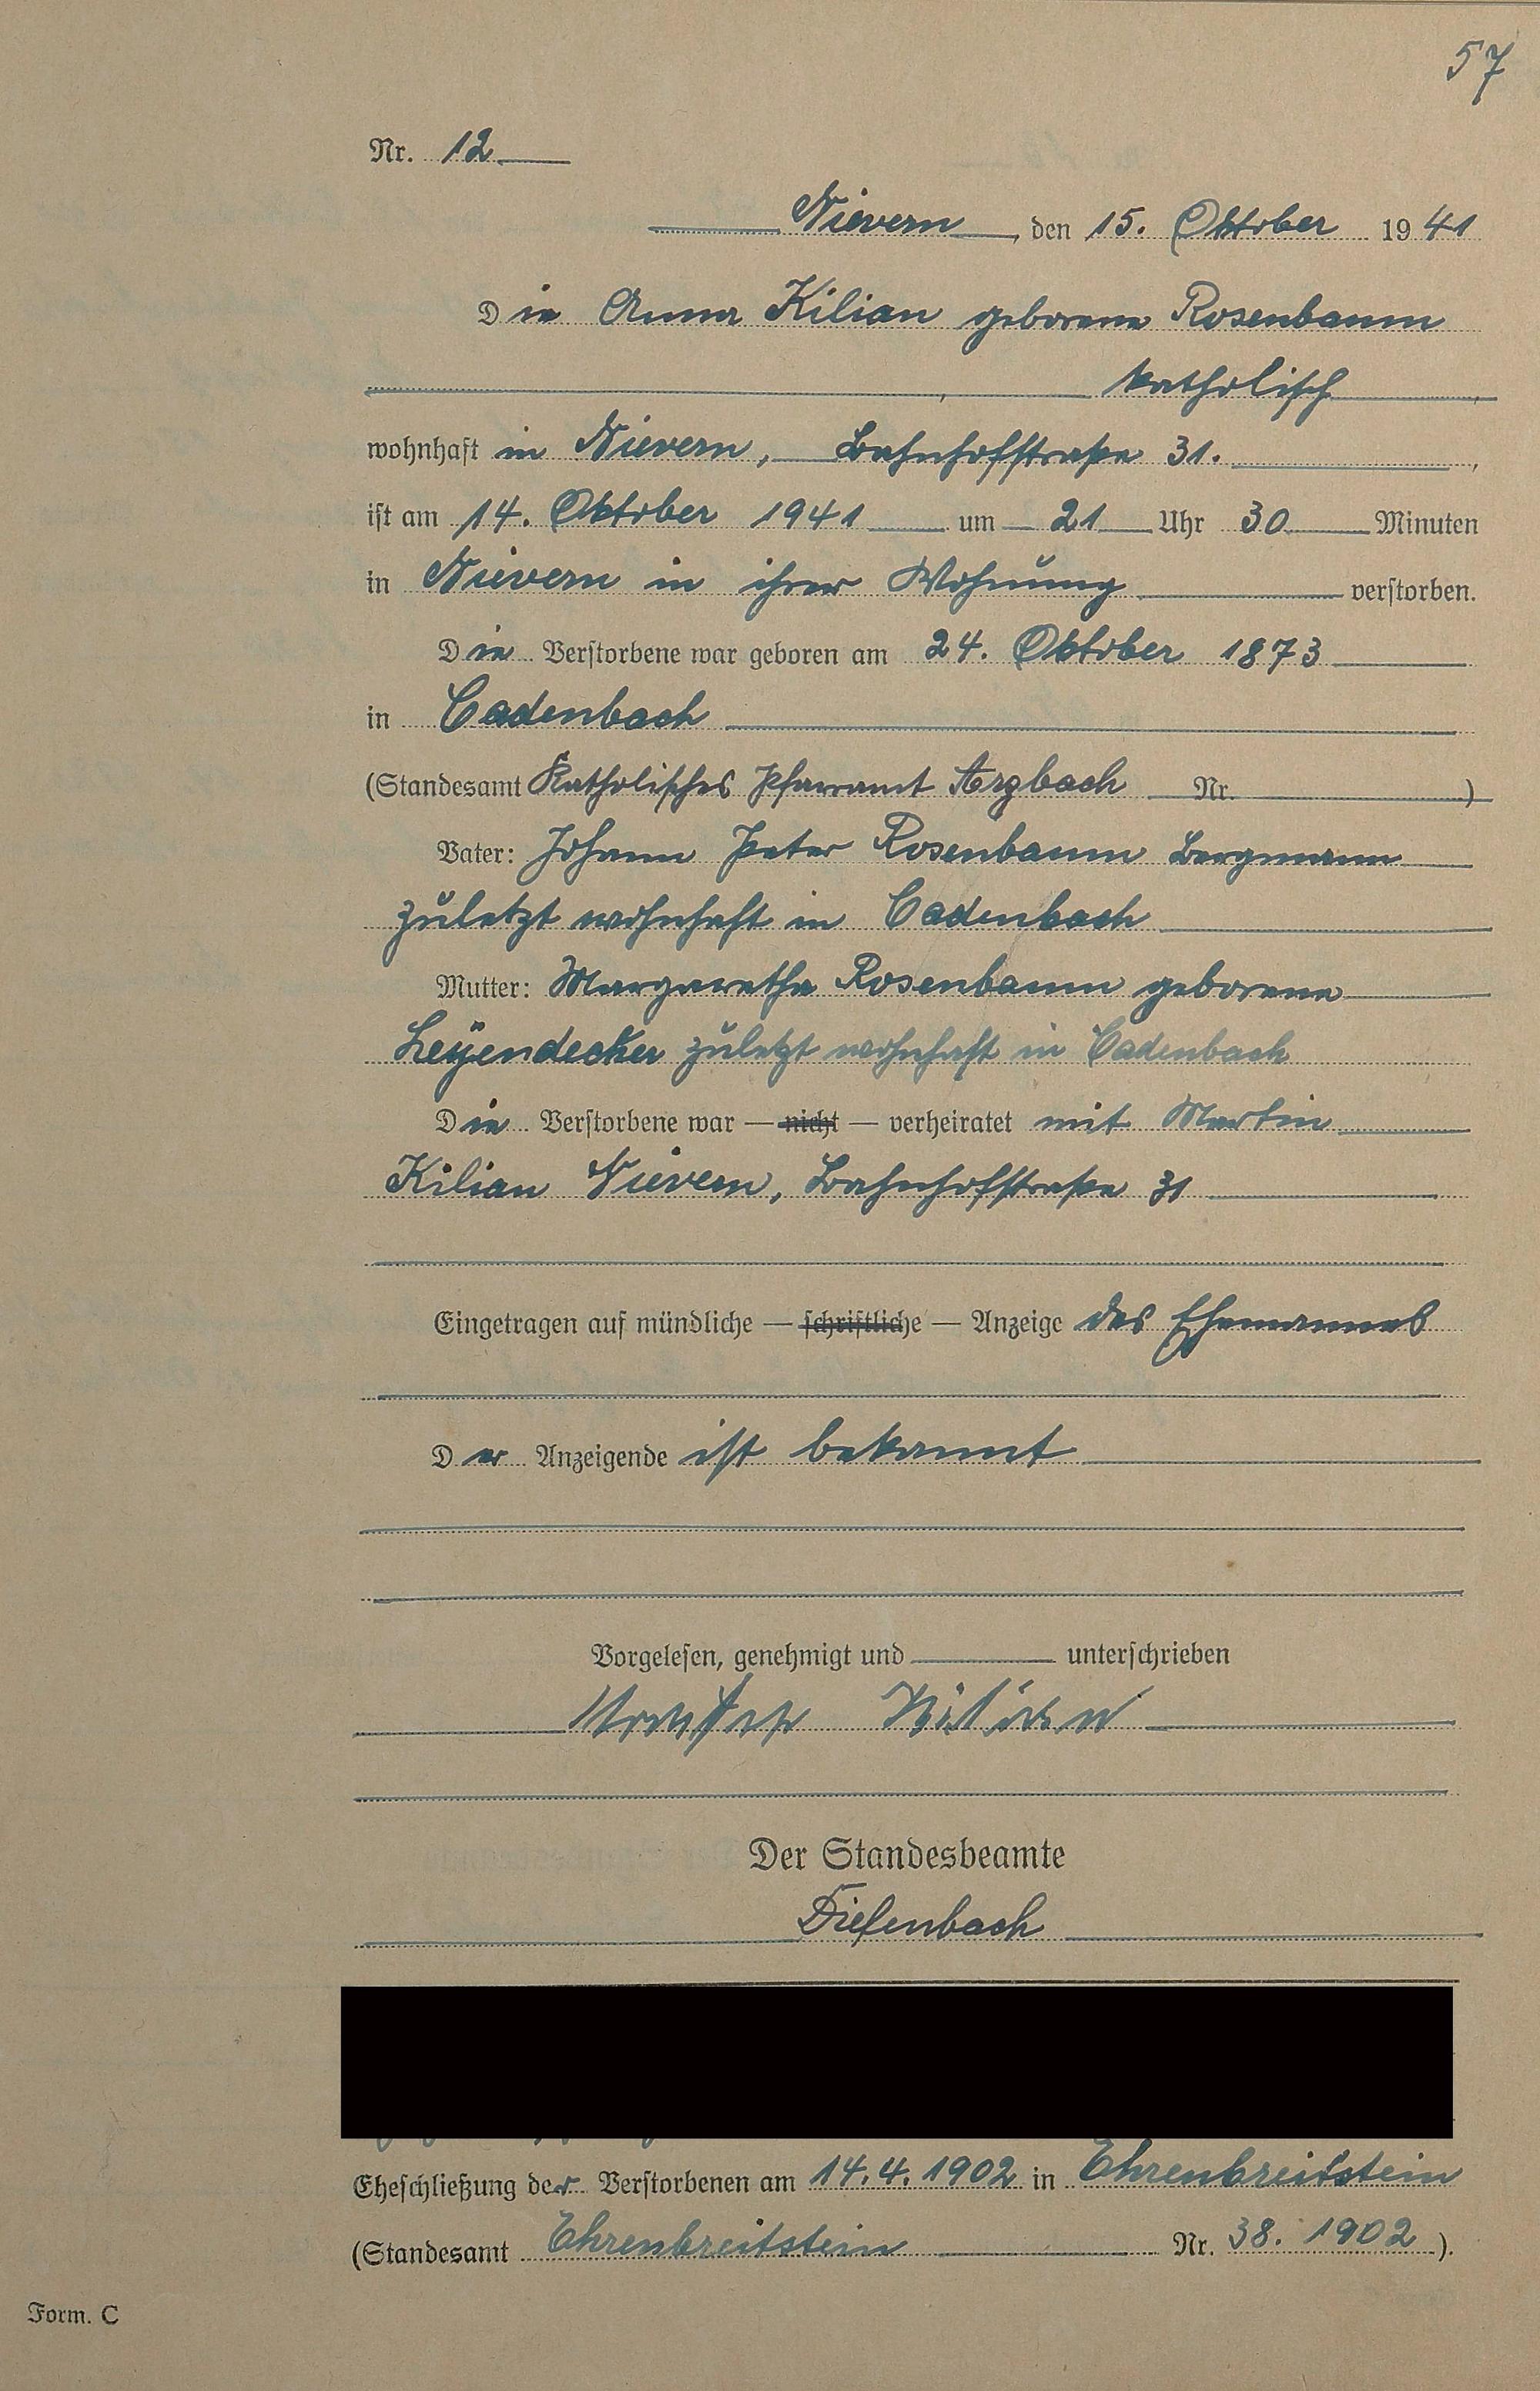 57
Nr. 12
Nievern, den 15. Oktober 1941
Die Anna Kilian geborene Rosenbaum
katholisch
wohnhaft in Nievern, Bahnhofstraße 31.
ist am 14. Oktober 1941 um 21 Uhr 30 Minuten
in Nievern in ihrer Wohnung verstorben.
Die Verstorbene war geboren am 24. Oktober 1873
in Cadenbach
(Standesamt Katholisches Pfarramt Arzbach Nr. )
Vater: Johann Peter Rosenbaum Bergmann
zuletzt wohnhaft in Cadenbach
Mutter: Margaretha Rosenbaum geborene
Leÿendecker zuletzt wohnhaft in Cadenbach
Die Verstorbene war — nicht — verheiratet mit Martin
Kilian Nievern, Bahnhofstraße 31
Eingetragen auf mündliche — schriftliche — Anzeige des Ehemannes
Der Anzeigende ist bekannt
Vorgelesen, genehmigt und unterschrieben
Kilian
Der Standesbeamte
Diefenbach
Eheschließung der Verstorbenen am 14.4.1902 in Ehrenbreitstein
(Standesamt Ehrenbreitstein Nr. 38. 1902).
Form. C